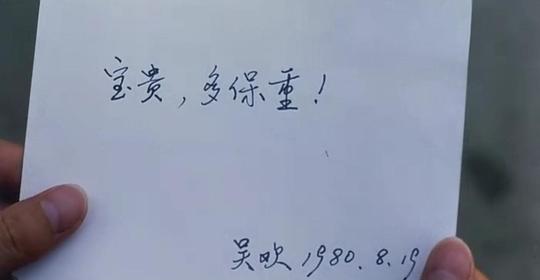 宝贵，多保重！
吴欢 1980.8.19